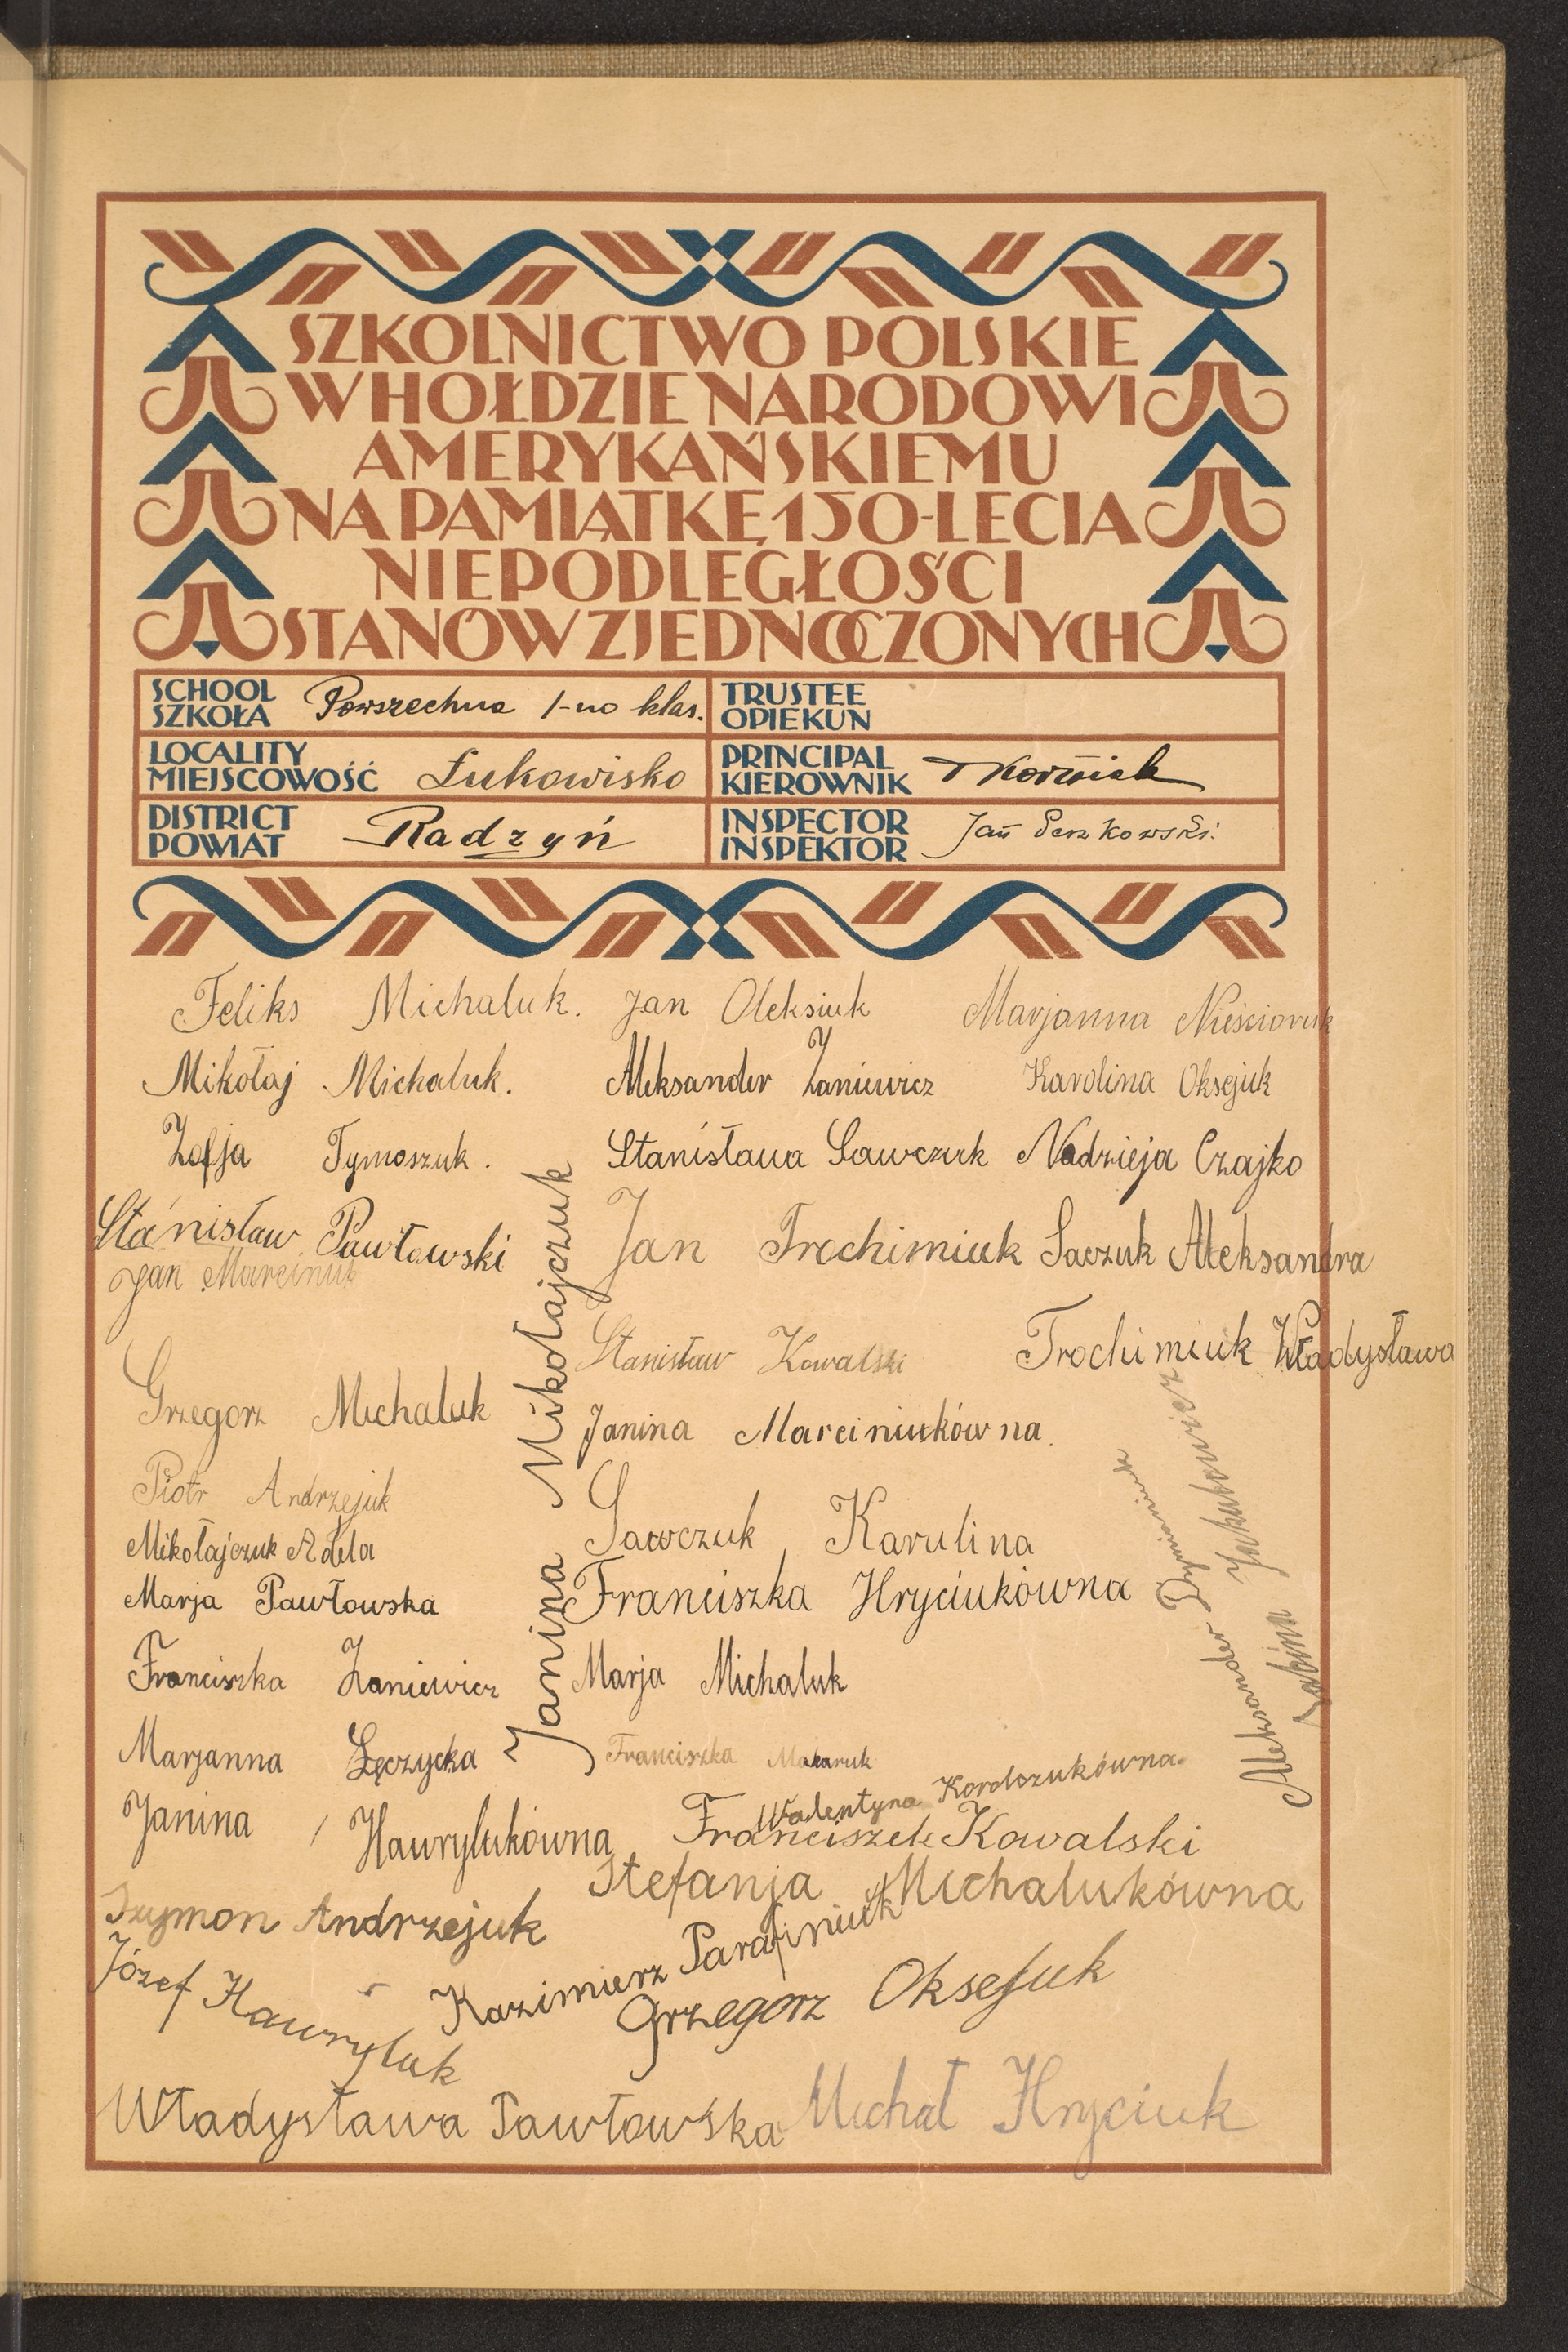 SZKOLNICTWO POLSKIE
W HOŁDZIE NARODOWI
AMERYKAŃSKIEMU
NA PAMIĄTKĘ 150-LECIA
NIEPODLEGŁOŚCI
STANÓW ZJEDNOCZONYCH
SCHOOL
SZKOŁA
Powszechna 1-no klas.
TRUSTEE
OPIEKUN
LOCALITY
MIEJSCOWOŚĆ
Łukowisko
PRINCIPAL
KIEROWNIK
DISTRICT
POWIAT
Radzyń
INSPECTOR
INSPEKTOR
Jan
Feliks Michaluk.
Jan Oleksiuk
Marjanna Nieścioruk
Mikołaj Michaluk.
Aleksander Zaniewicz
Karolina Oksejuk
Zofja Tymoszuk.
Stanisława Sawczuk
Nadzieja Czajko
Stanisław Pawłowski
Jan Trochimiuk
Saczuk Aleksandra
Jan Marciniuk
Janina Mikołajczuk
Stanisław Kowalski
Trochimiuk Władysława
Grzegorz Michaluk
Janina Marciniukówna.
Piotr Andrzejuk
Sawczuk Karulina
Mikołajczuk Adela
Franciszka Hryciukówna
Marja Pawłowska
Aleksander Dymianiuk
Sabina Jakubowicz
Franciszka Zaniewicz
Marja Michaluk
Marjanna Łęczycka
Franciszka Makaruk
Walentyna Korolczukówna.
Janina Hawrylukówna
Franciszek Kowalski
Stefanja Michalukówna
Szymon Andrzejuk
Kazimierz Parafiniuk
Józef Hawryluk
Grzegorz Oksejuk
Władysława Pawłowska
Michał Hryciuk